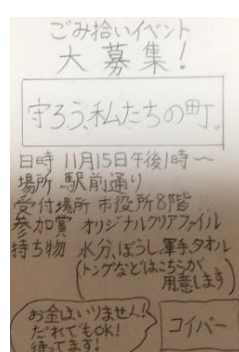 ごみ拾いイベント
大募集!
守ろう、私たちの町。
日時 11月15日午後1時〜
場所 駅前通り
受付場所 市役所8階
参加賞 オリジナルクリアファイル
持ち物 水分、ぼうし、軍手、タオル
(トングなどはこちらが
用意します)
お金はいりません!!
だれでもOK!
待ってます!
コイバー